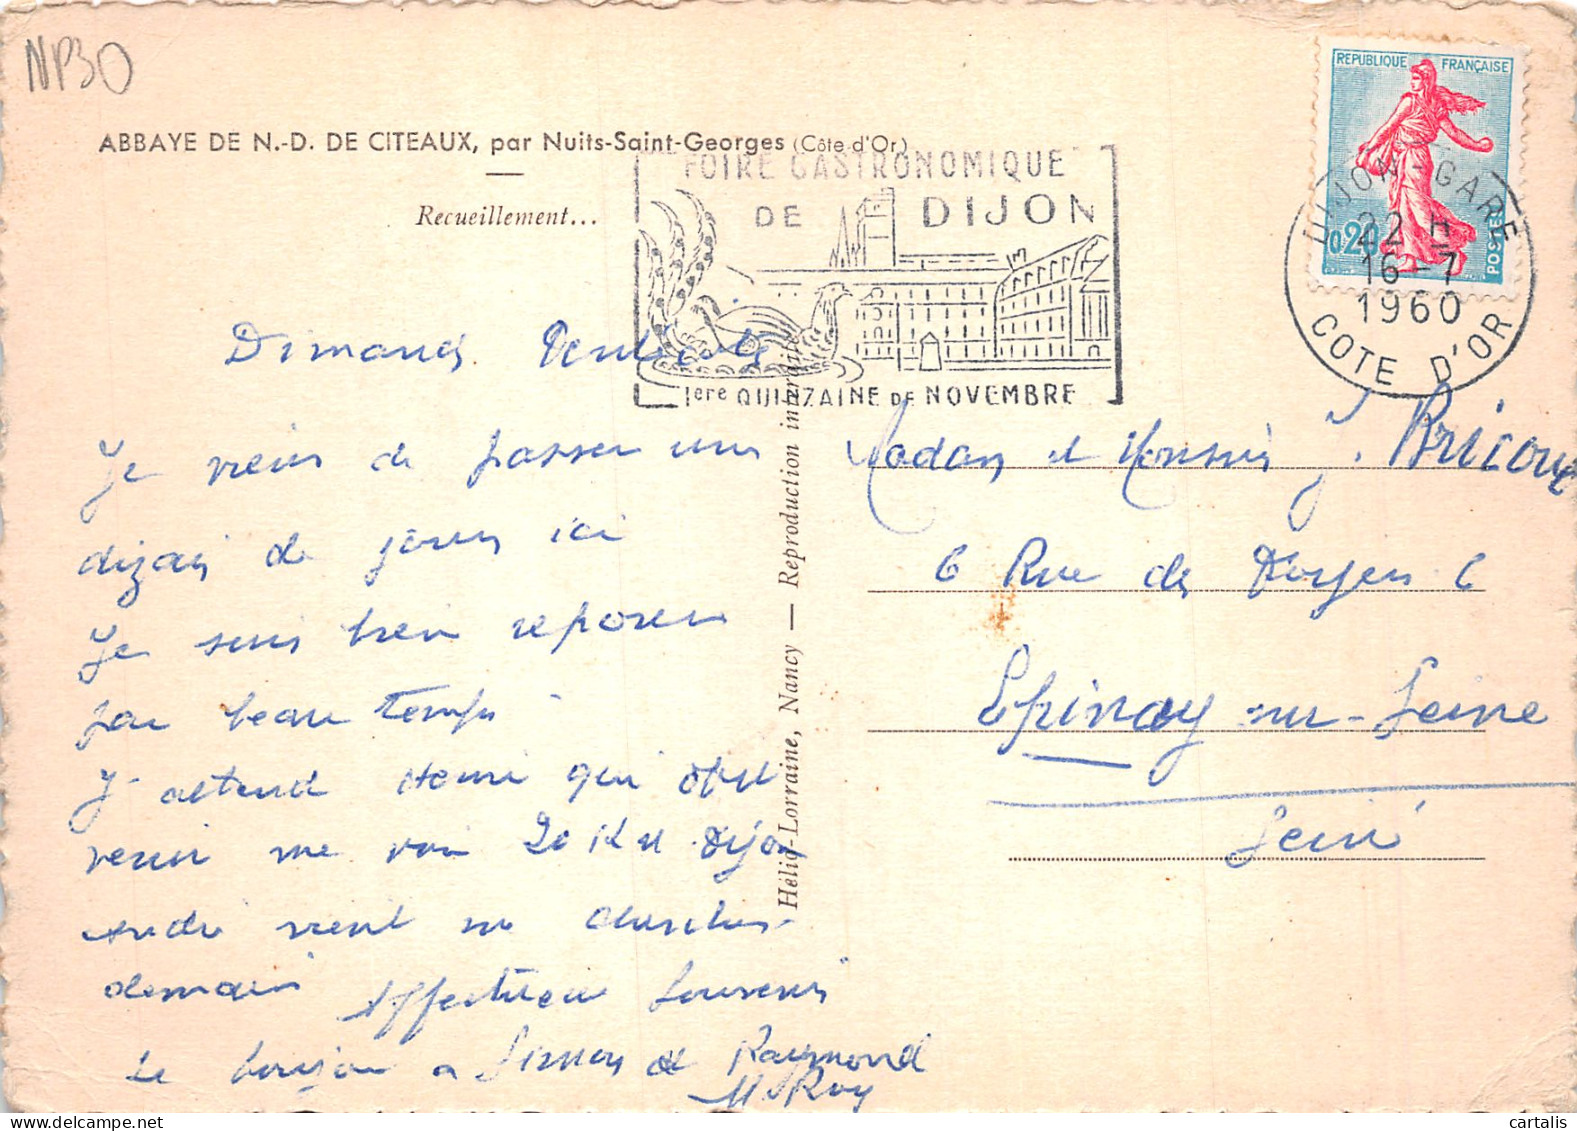 NP30
ABBAYE DE N.-D. DE CITEAUX, par Nuits-Saint-Georges (Côte d'Or)
Recueillement...
FOIRE GASTRONOMIQUE
DE DIJON
1ere QUINZAINE DE NOVEMBRE
REPUBLIQUE FRANÇAISE
0,20
POSTES
DIJON-GARE
22 H
16-7
1960
COTE D'OR
Dimanch
Je viens de passer une
dizain de jours ici
Je suis bien reposer
par beau temps
J'attend qui
venir me voir 20 Km Dijon
André vient me chercher
demain Affectueux Souvenir
Le bonjour a Simon et Raymond
M. Roy
Hélio-Lorraine, Nancy — Reproduction interdite
Madam et Monsieur J. Bricou
6 Rue des 6
Epinay sur-Seine
Seine
cartalis